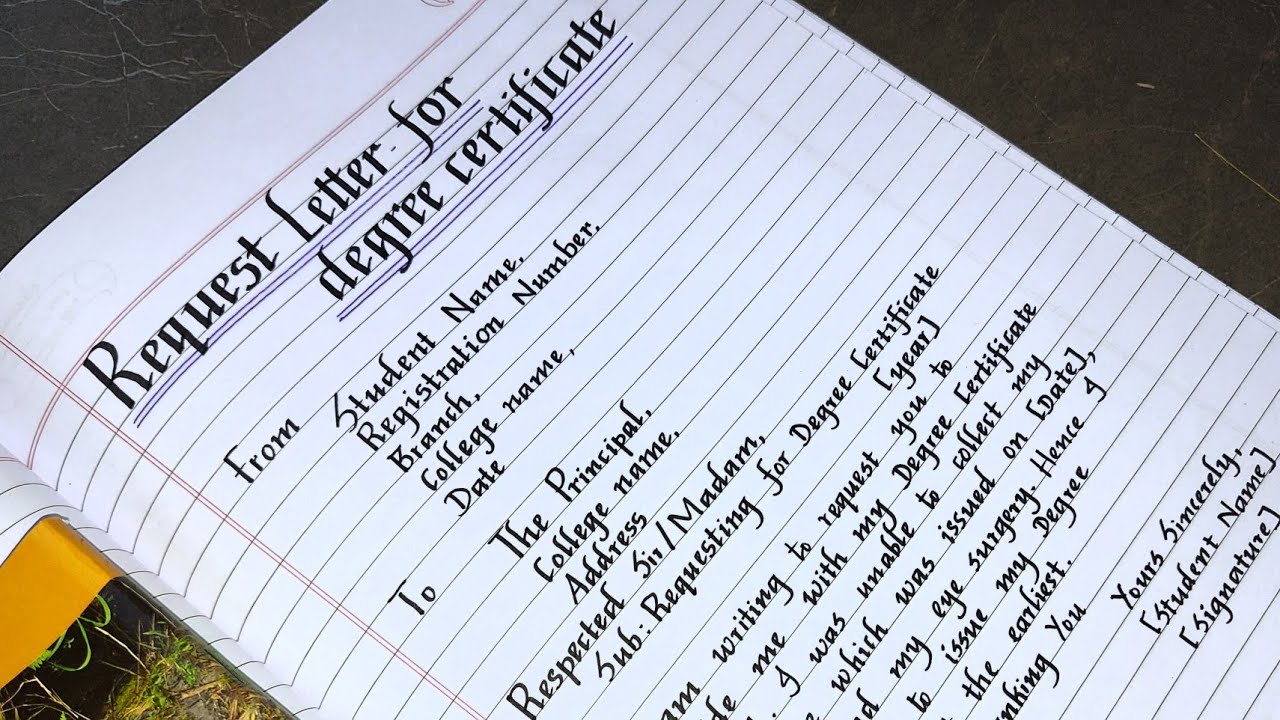 Request Letter for
degree certificate
From
Student Name,
Registration Number,
Branch,
College name,
Date
To
The Principal,
College name,
Address
Respected Sir/Madam,
Sub: Requesting for Degree Certificate
[year]
am writing to request you to
me with my Degree Certificate
I was unable to collect my
which was issued on [Date],
my eye surgery. Hence I
to issue my Degree
the earliest.
You
Yours Sincerely,
[Student Name]
[Signature]